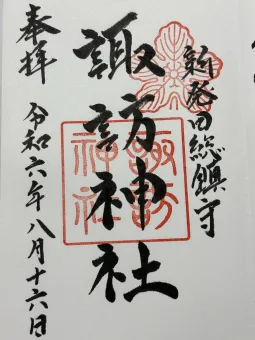 新発田総鎮守
諏訪神社
諏訪
神社
奉拝
令和六年八月十六日